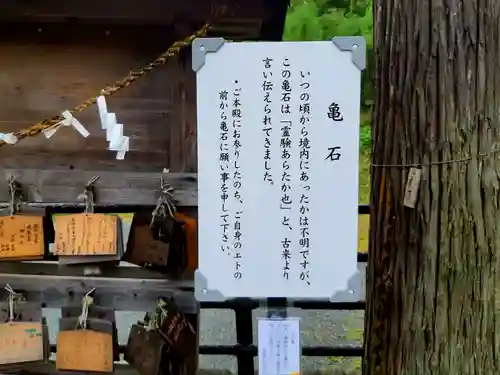 亀石
いつの頃から境内にあったかは不明ですが、
この亀石は「霊験あらたか也」と、古来より
言い伝えられてきた。
・ご本殿にお参りしたのち、ご自身のエトの
前から亀石に願い事を申して下さい。